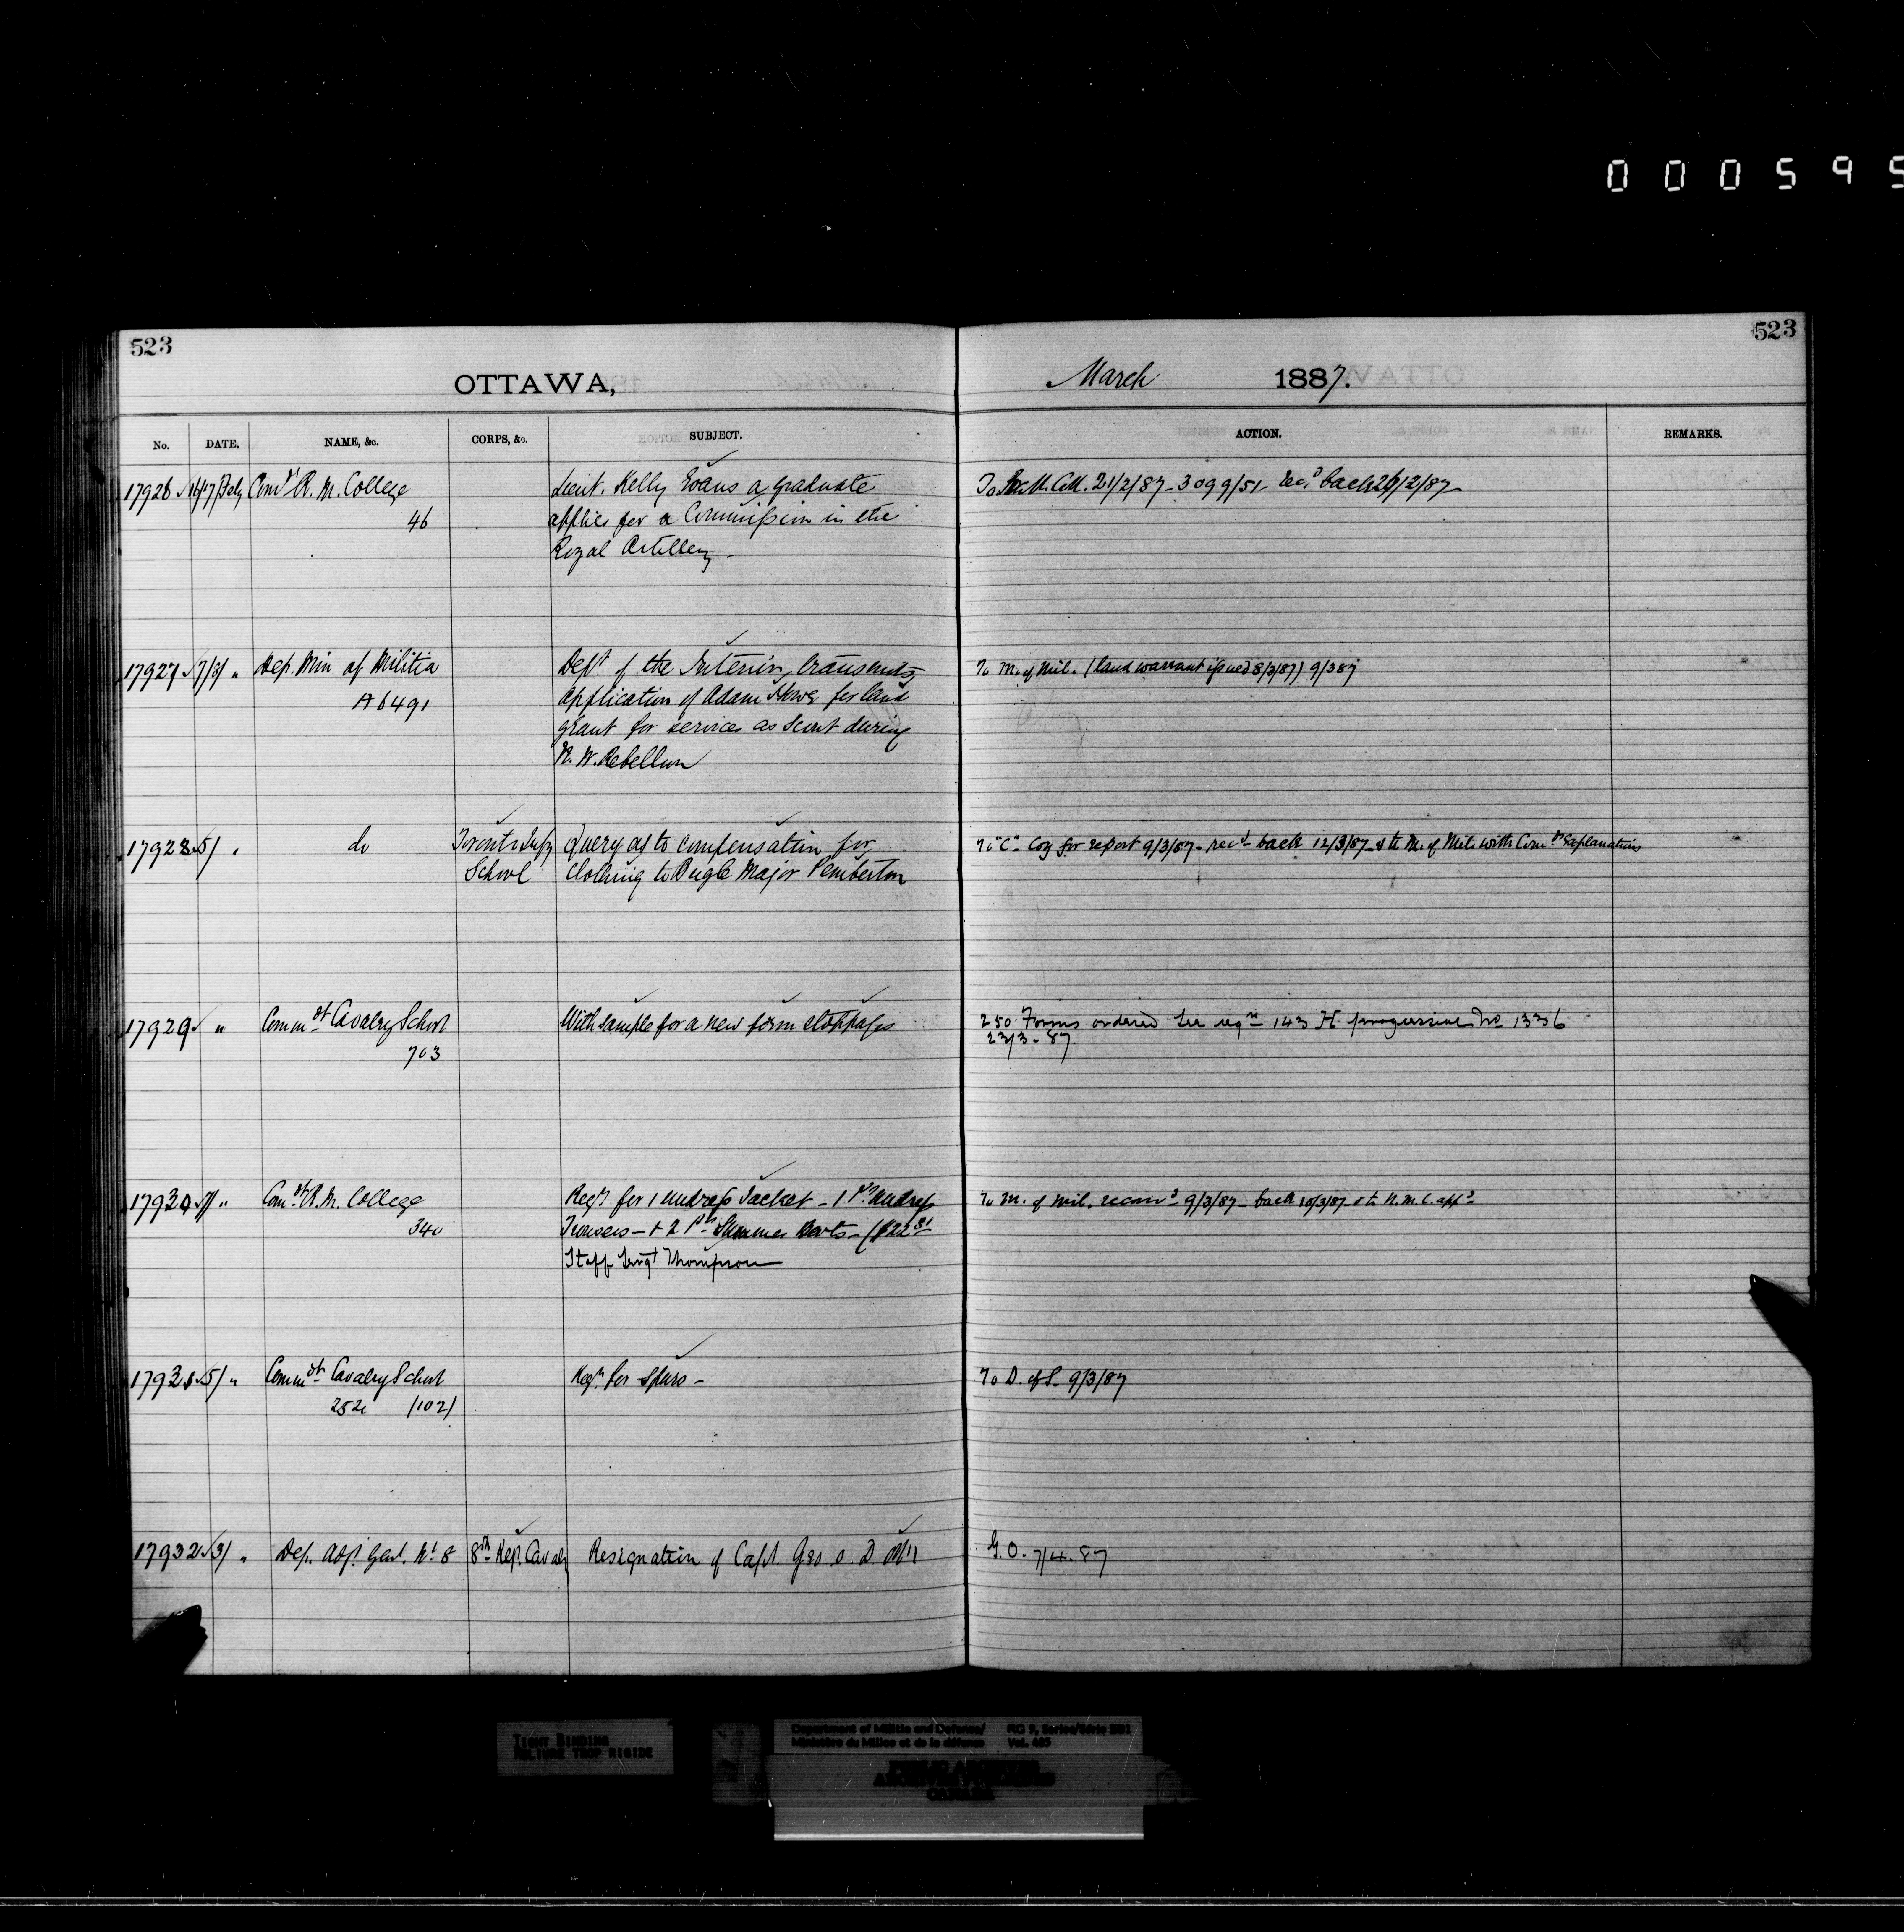 000595
523
523
OTTAWA,
March 1887.
No. DATE. NAME, &c. CORPS, &c. SUBJECT. ACTION. REMARKS.
17926 Comdt R. M. College Lieut. Kelly Evans a graduate 21/2/87 - 3099/51 - Recd back 26/2/87
46 applies for a Commission in the
Royal Artillery -
17927 7/3/ " Dep. Min. of Militia Dept of the Interior, transmits To M. of Mil. (land warrant issued 8/3/87) 9/3/87
A6491 application of Adam Howe for land
grant for services as Scout during
N. W. Rebellion
17928 5/ " do Toronto Infy Query as to compensation for To "C" Coy for report 9/3/87 - recd back 12/3/87 & to M. of Mil. with Comdts Explanations
School Clothing to Bugle Major Pemberton
17929 " Commdt Cavalry School With sample for a new form stoppages 250 Forms ordered See reqn 143 H progressive No 1336
703 23/3 - 87.
17930 7/ " Comdt R. M. College Reqn for 1 undress Jacket - 1 pr undress To M. of Mil. recomd 9/3/87 - back 10/3/87 & to R. M. C. appd
340 Trousers - & 2 prs Summer (\$22 81
Staff Sergt Thompson
17931 5/ " Commdt Cavalry School Reqn for Spurs - To D. of S. 9/3/87
252 (102)
17932 3/ " Dep. Adj. Genl. No 8 8th Reg. Cavaly Resignation of Capt. Geo. O. D. Otty G. O. 7/4 - 87
TIGHT BINDING
RELIURE TROP RIGIDE
Department of Militia and Defence/ RG 9, Series/Série IIB1
Ministère du Milice et de la défense Vol. 605
PUBLIC ARCHIVES
ARCHIVES PUBLIQUES
CANADA